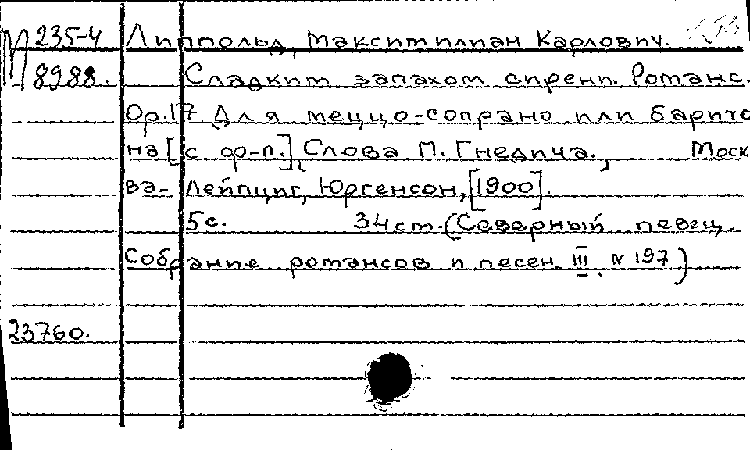 М 235-4 Липпольд, Максимилиан Карлович.
8988. Сладким запахом сирени. Романс.
Op.17 Для меццо-сопрано или барито
на [с ф-п.], Слова П. Гнедича., Моск
ва- Лейпциг, Юргенсон, [1900].
5с. 34см. (Северный певец.
Собрание романсов и песен. III. N 197)
23760.